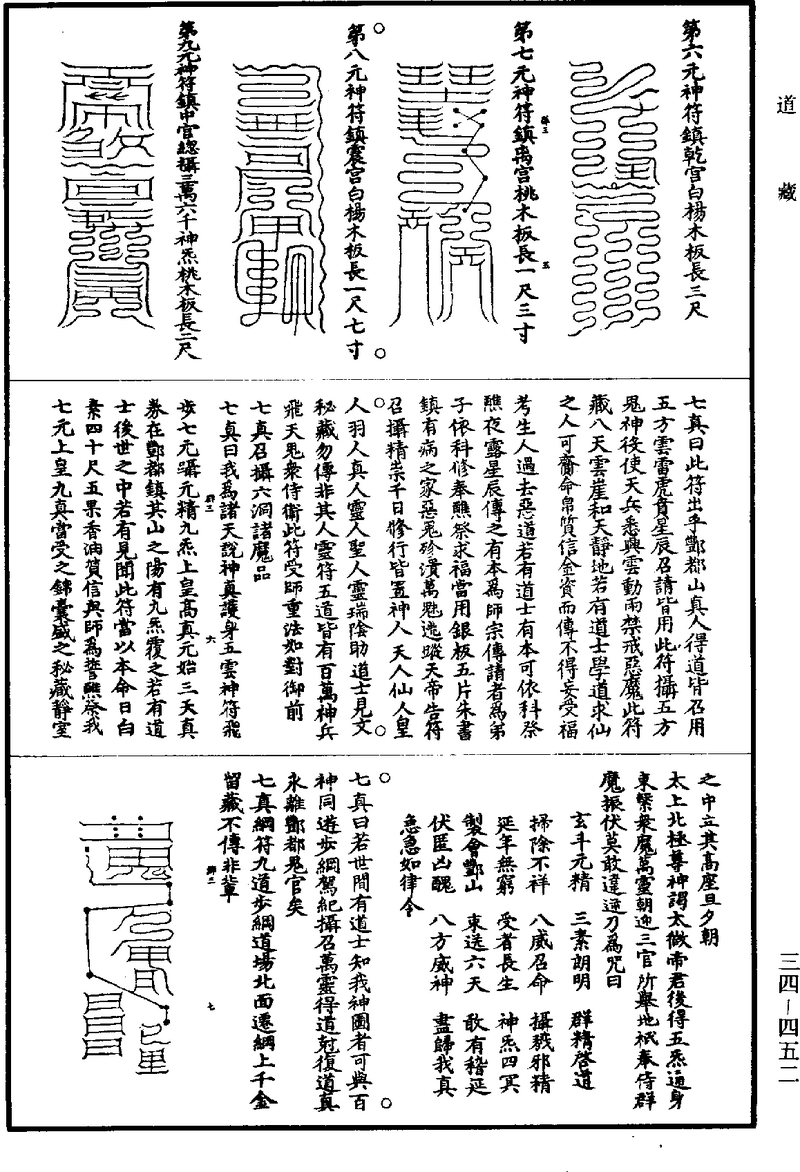 道藏
第六元神符鎮乾宮白楊木板長三尺
第七元神符鎮离宮桃木板長一尺三寸
第八元神符鎮震宮白楊木板長一尺七寸
第九元神符鎮中宮總攝三萬六千神炁桃木板長二尺
七真曰此符出乎酆都山真人得道皆召用
五方雲雷虎賁星辰召請皆用此符攝五方
鬼神役使天兵悉興雲動雨禁戒惡魔此符
藏八天雲崖和天靜地若有道士學道求仙
之人可齎命帛質信金資而傳不得妄受福
考生人過去惡道若有道士有本可依科祭
醮夜露星辰傳之有本為師宗傳請者為弟
子依科修奉醮祭求福當用銀板五片朱書
鎮有病之家惡鬼殄潰萬魁逃蹤天帝告符
召攝精祟千日修行皆置神人天人仙人皇
人羽人真人靈人聖人靈瑞陰助道士見文
秘藏勿傳非其人靈符五道皆有百萬神兵
飛天鬼衆侍衛此符受師重法如對御前
七真召攝六洞諸魔品
七真曰我為諸天說神真護身五雲神符飛
步七元攝元精九炁上皇高真元始三天真
券在酆都鎮其山之陽有九炁覆之若有道
士後世之中若有見聞此符當以本命日白
素四十尺五果香油質信與師為誓醮祭我
七元上皇九真當受之錦囊盛之秘藏靜室
之中立其高座旦夕朝
太上北極尊神謁太微帝君後得五炁通身
東繫衆魔萬靈朝迎三官所舉地祇奉侍群
魔振伏莫敢違逆乃為咒曰
玄斗元精 三素朗明 群精啓道
掃除不祥 八威召命 攝戮邪精
延年無窮 受者長生 神炁四冥
製會酆山 東送六天 敢有稽延
伏匿凶醜 八方威神 盡歸我真
急急如律令
七真曰若世間有道士知我神圖者可與百
神同遊步綱駕紀攝召萬靈得道尅復道真
永離酆都鬼官矣
七真綱符九道步綱道場北面遷綱上千金
留藏不傳非輩
三四－四五二